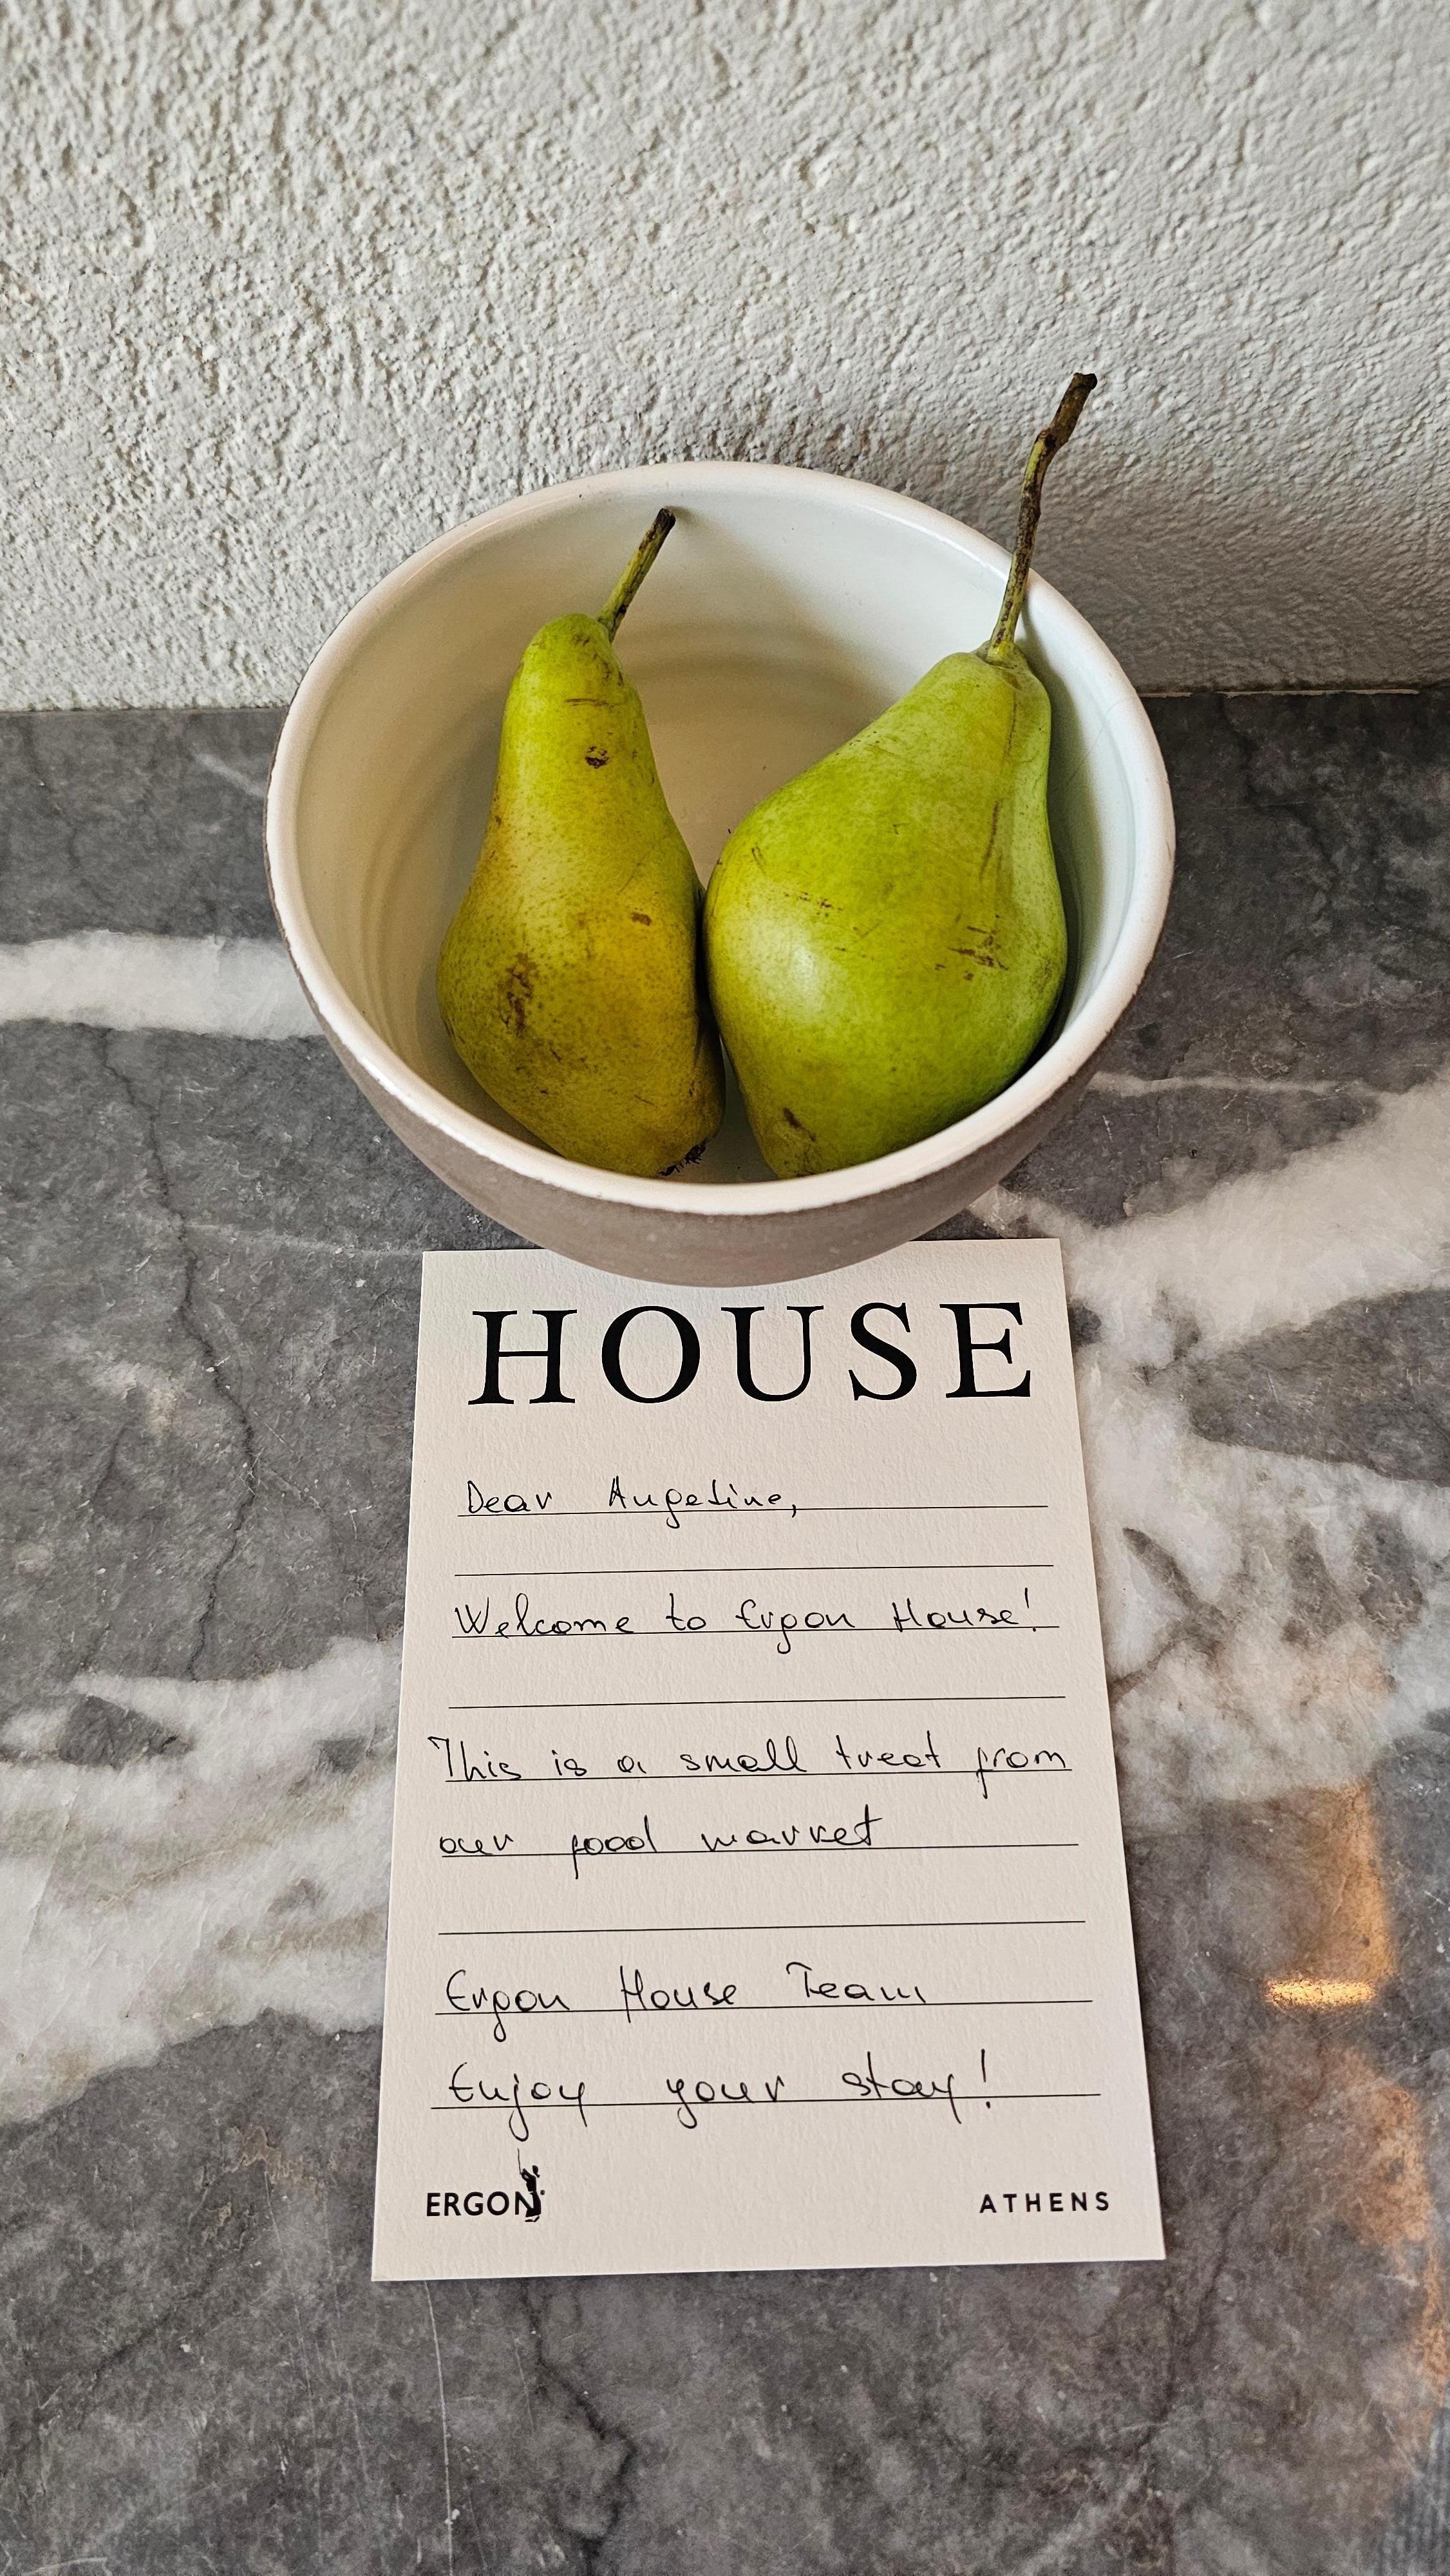 HOUSE
Dear Angeline,
Welcome to Ergon House!
This is a small treat from
our food market
Ergon House Team
Enjoy your stay!
ERGON
ATHENS